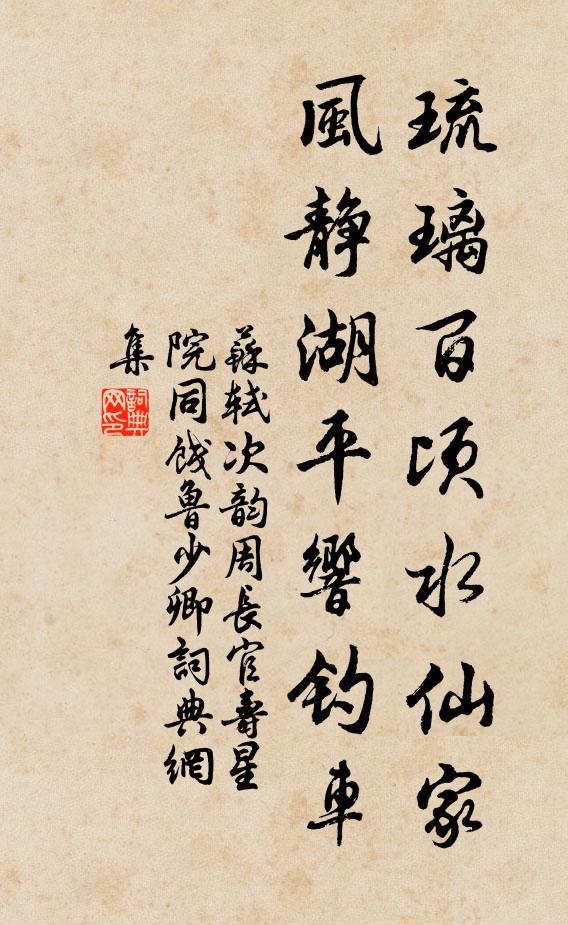 琉璃百頃水仙家
風靜湖平響釣車
蘇軾次韵周長官壽星
院同餞魯少卿詞典網
集
詞典网印